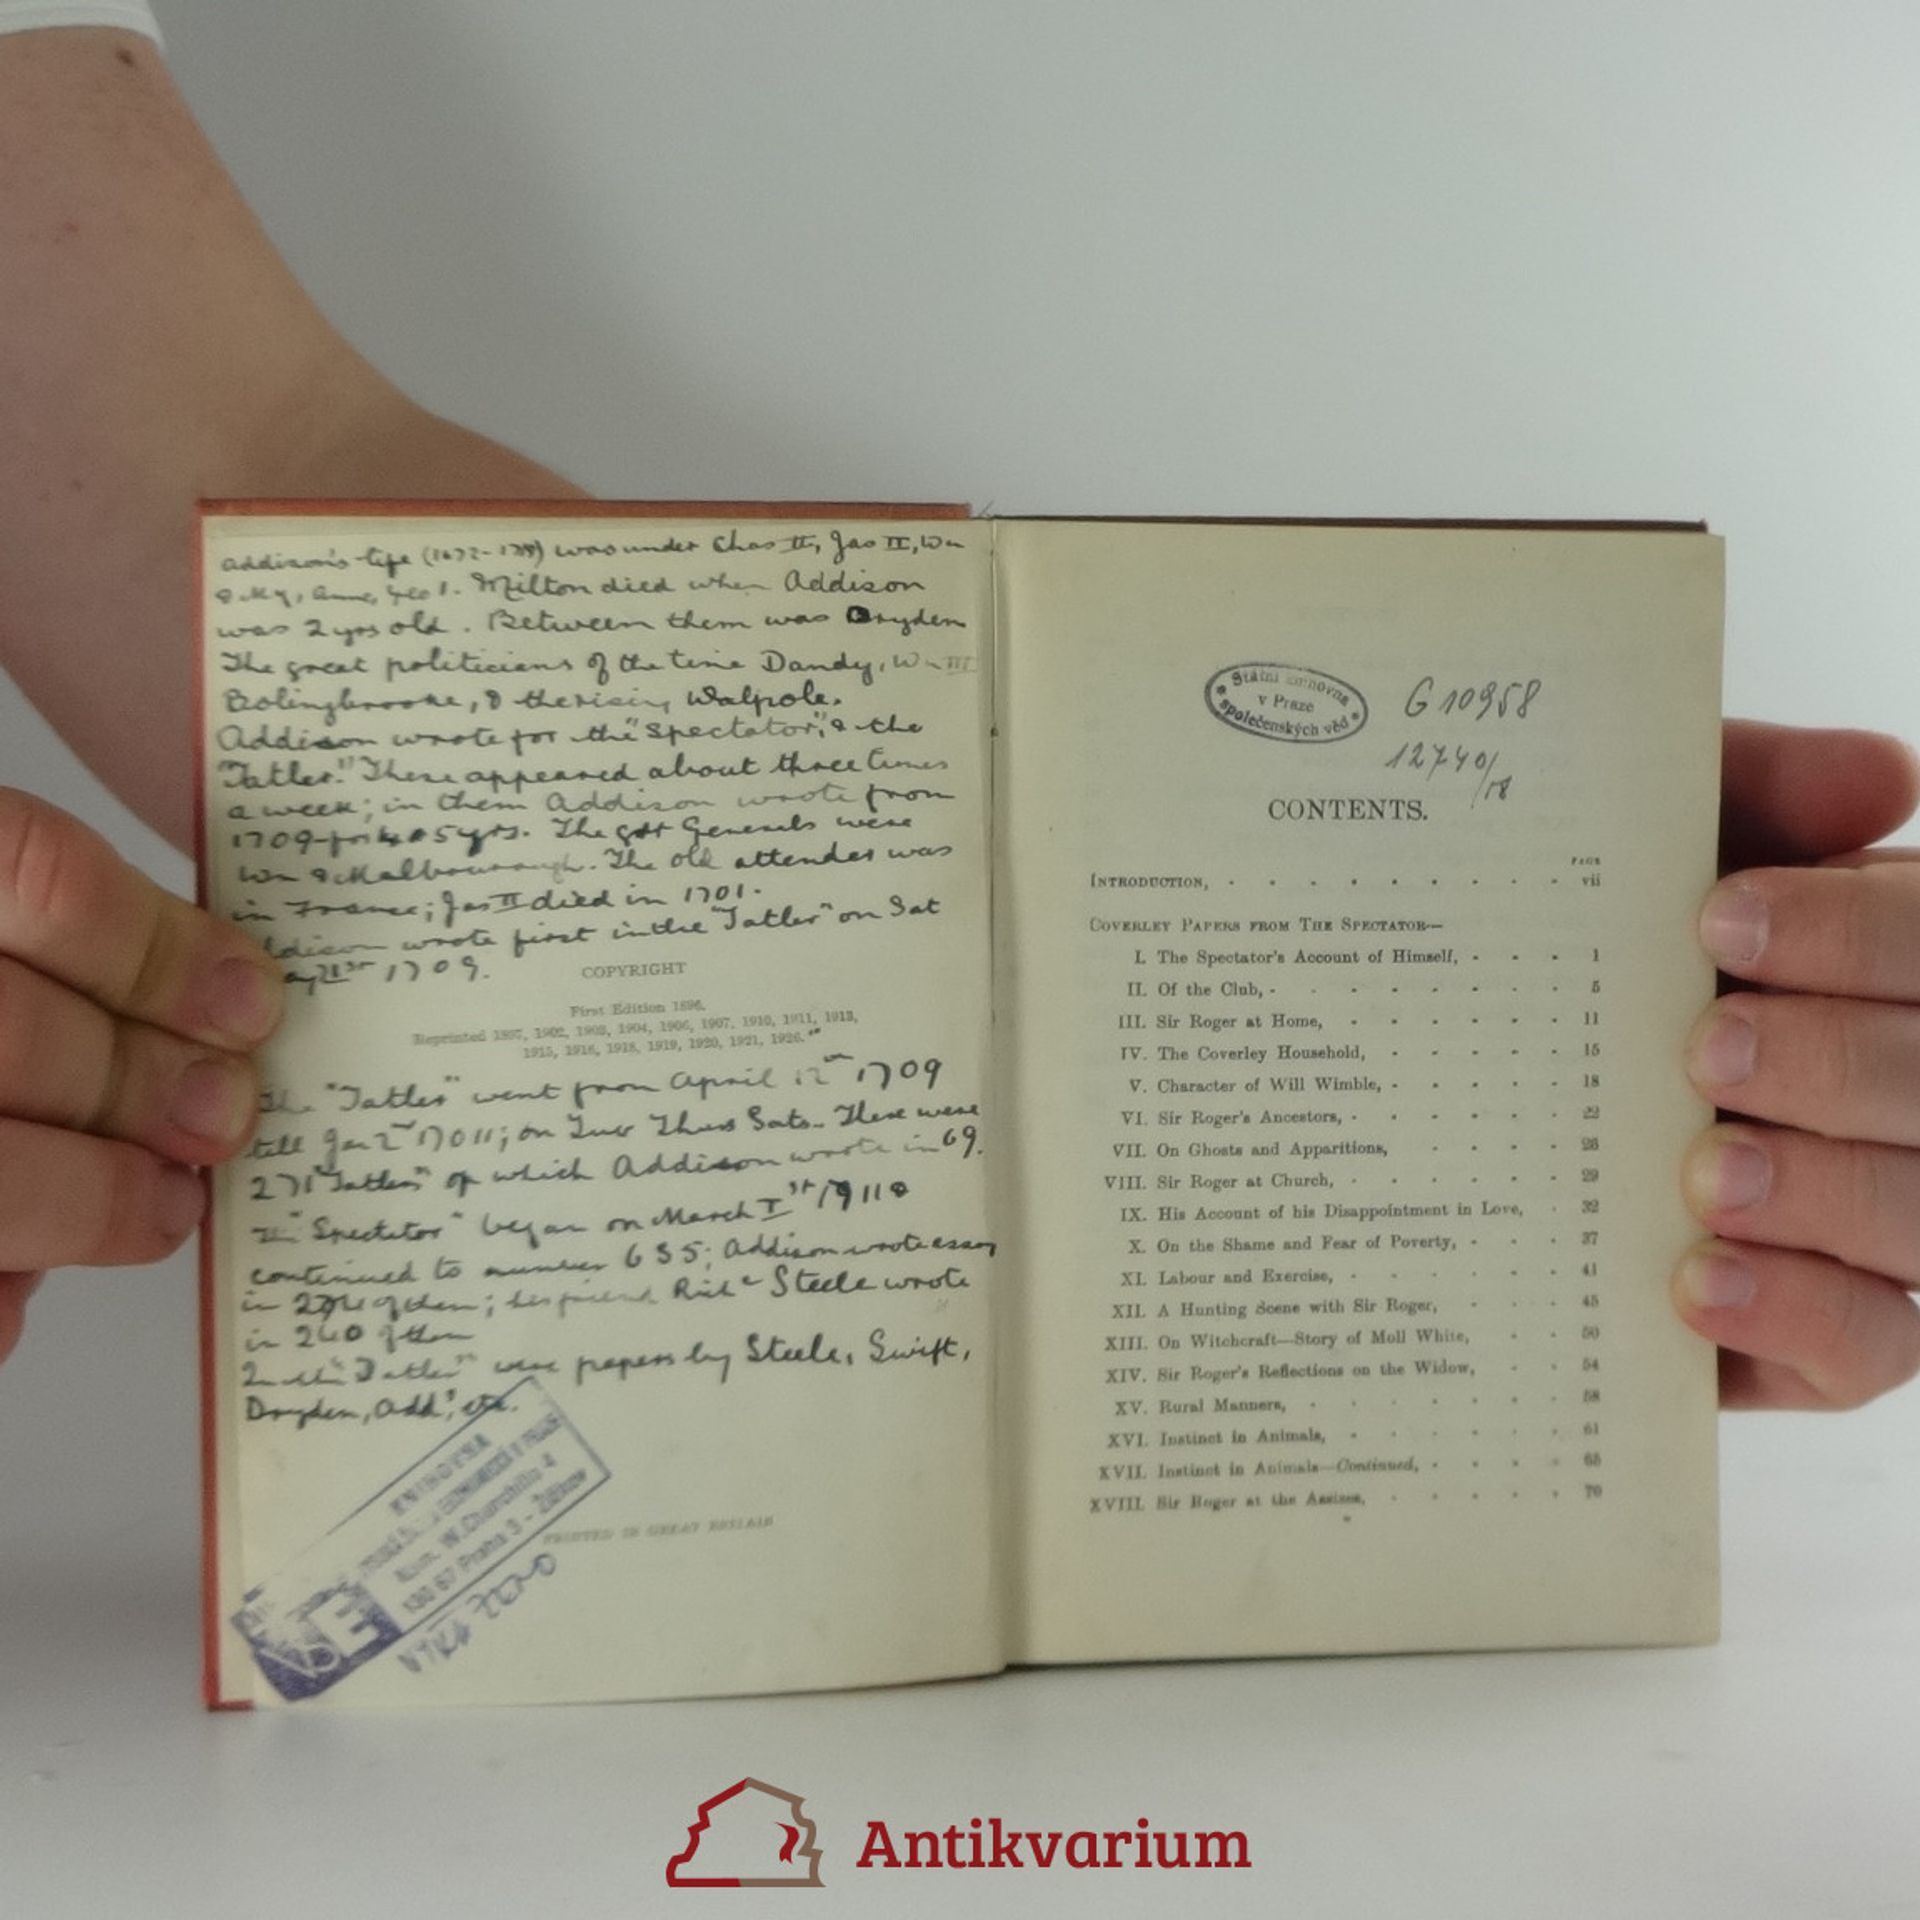 Addison's life (1672-1719) was under Chas II, Jas II, Wm
& My, Anne, Geo I. Milton died when Addison
was 2 yrs old. Between them was Dryden
The great politicians of the time Dandy, Wm III
Bolingbrooke, & the rising Walpole.
Addison wrote for the "Spectator", & the
"Tatler." These appeared about three times
a week; in them Addison wrote from
1709 for 4 or 5 yrs. The grt Generals were
Wm & The old was
in France; Jas II died in 1701.
wrote first in the "Tatler" on Sat
21st 1709.
COPYRIGHT
First Edition 1896.
Reprinted 1897, 1902, 1903, 1904, 1906, 1907, 1910, 1911, 1913,
1915, 1916, 1918, 1919, 1920, 1921, 1926.
The "Tatler" went from April 12th 1709
till Jan 2nd 17011; on Tues Thurs Sats. There were
271 "Tatlers" of which Addison wrote in 69.
The "Spectator" began on March 1st &
continued to number 635; Addison wrote essay
in of them; his friend Richd Steele wrote
in 240 of them
In the "Tatler" were papers by Steele, Swift,
Dryden, Addn, etc.
KNIHOVNA
Nám. W. Churchilla 4
130 67 Praha 3 - Žižkov
PRINTED IN GREAT BRITAIN
Státní knihovna
v Praze
společenských věd
G 10958
12740/18
CONTENTS.
PAGE
INTRODUCTION, vii
COVERLEY PAPERS FROM THE SPECTATOR—
I. The Spectator's Account of Himself, 1
II. Of the Club, 5
III. Sir Roger at Home, 11
IV. The Coverley Household, 15
V. Character of Will Wimble, 18
VI. Sir Roger's Ancestors, 22
VII. On Ghosts and Apparitions, 26
VIII. Sir Roger at Church, 29
IX. His Account of his Disappointment in Love, 32
X. On the Shame and Fear of Poverty, 37
XI. Labour and Exercise, 41
XII. A Hunting Scene with Sir Roger, 45
XIII. On Witchcraft—Story of Moll White, 50
XIV. Sir Roger's Reflections on the Widow, 54
XV. Rural Manners, 58
XVI. Instinct in Animals, 61
XVII. Instinct in Animals—Continued, 65
XVIII. Sir Roger at the Assizes, 70
Antikvarium